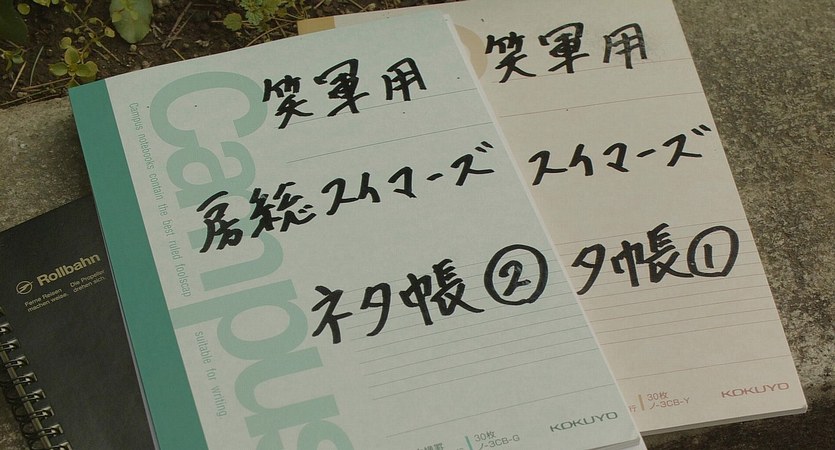 笑軍用
房総スイマーズ
ネタ帳②
Campus
Campus notebooks contain the best ruled foolscap
suitable for writing
30枚
ノ-3CB-G
KOKUYO
笑軍用
スイマーズ
タ帳①
30枚
ノ-3CB-Y
KOKUYO
Rollbahn
Ferne Reisen Die Propeller
machen weise. drehen sich.